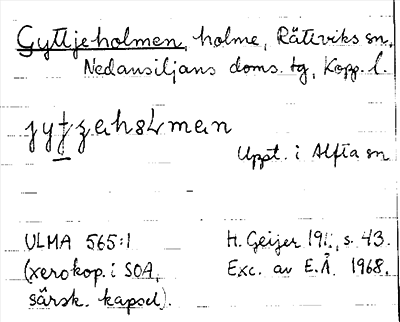 Gyttjeholmen, holme, Rättviks sn,
Nedansiljans doms. tg, Kopp. l.
Uppt. i Alfta sn
ULMA 565:1 H. Geijer 191., s. 43.
(xerokop. i SOA, Exc. av E.Å. 1968.
särsk. kapsel).